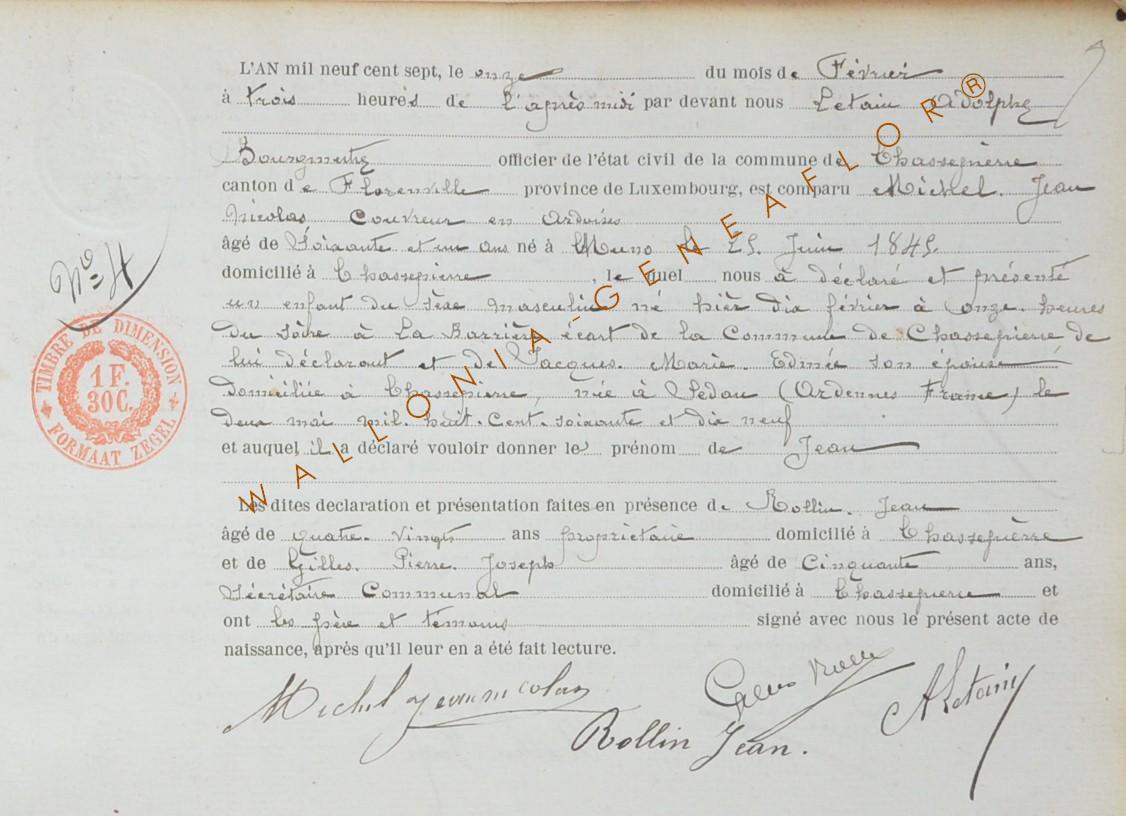 L'AN mil neuf cent sept, le onze du mois de Février
à trois heures de l'après midi par devant nous Letain Adolphe
Bourgmestre officier de l'état civil de la commune de Chassepierre
canton de Florenville province de Luxembourg, est comparu Michel. Jean
Nicolas Couvreur en Ardoises
âgé de Soixante et un ans né à Muno le 25 Juin 1845
domicilié à Chassepierre, lequel nous à déclaré et présenté
un enfant du Sèxe Masculin né hièr dix février à onze heures
du Soire à La Barrière écart de la Commune de Chassepierre de
lui déclarant et de Jacques. Marie. Edmée son épouse
domiciliée à Chassepierre, née à Sedan (Ardennes France) le
deux mai mil. huit. Cent. soixante et dix neuf
et auquel il a déclaré vouloir donner le prénom de Jean
Les dites declaration et présentation faites en présence de Rollin. Jean
âgé de quatre. Vingts ans propriètaire domicilié à Chassepierre
et de Gilles. Pierre. Joseph âgé de Cinquante ans,
Sécrétaire Communal domicilié à Chassepierre et
ont les père et témoins signé avec nous le présent acte de
naissance, après qu'il leur en a été fait lecture.
N° 4
TIMBRE DE DIMENSION
1 F.
30 C.
FORMAAT ZEGEL
Michel jean nicolas
Rollin Jean.
ALetain
WALLONIA-GENEAFLOR®